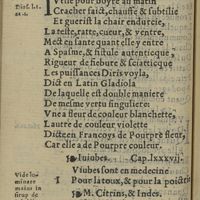 Vtille pour boyre au matin
Cracher faict, chauffe & subtilie
Et guerist la chair endurcie,
La teste, ratte, cueur, & ventre,
Mect en sante quant elle y entre
A Spasme, & fistule autentique,
Rigueur de fiebure & sciaticque
Les puissances Diris voyla,
Dict en Latin Gladiola
De laquelle est double maniere
De mesme vertu singuliere
Vne a fleur de couleur blanchette,
Lautre de couleur violette
Dicte en Francoys de Pourpre fleur,
Car elle a de Pourpre couleur.
Iuiubes. Cap. lxxxvij.
Viubes sont en medecine
Pour la toux, & pour la poictrine
M. Citrins, & Indes.
Diof. li.
Vide lu-
minare
maius in
sirup de